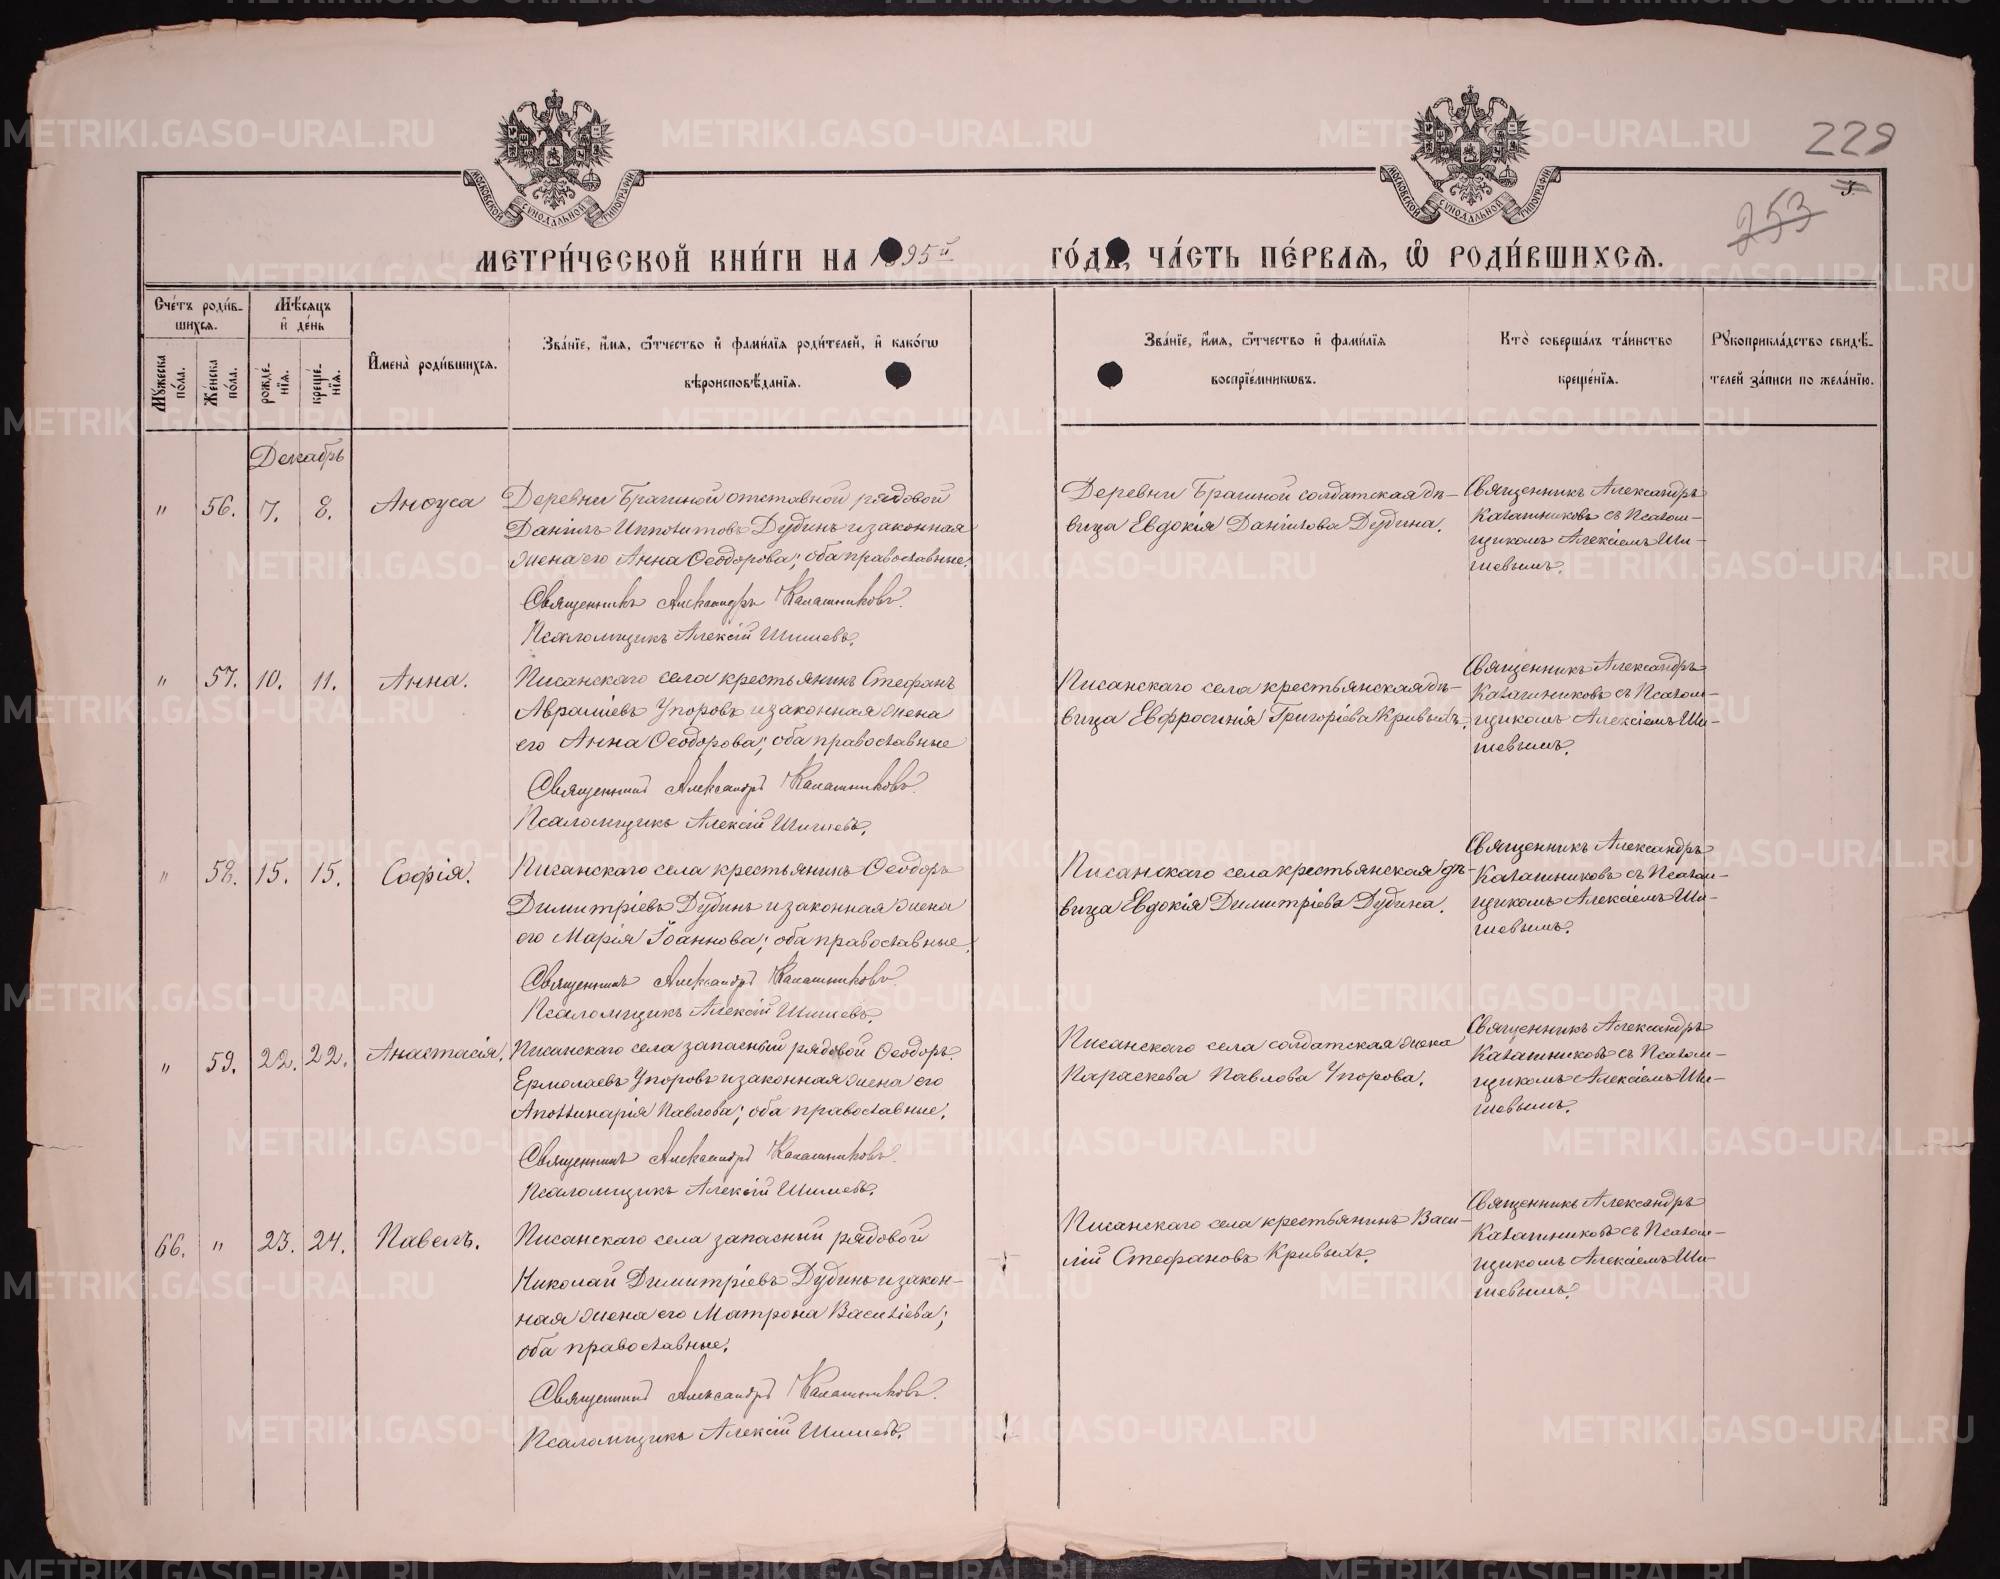 228
253
5.
МОСКОВСКОЙ СѴНОДАЛЬНОЙ ТИПОГРАФІИ
МОСКОВСКОЙ СѴНОДАЛЬНОЙ ТИПОГРАФІИ
МЕТРИ́ЧЕСКОЙ КНИ́ГИ НА 1895й ГО́ДА, ЧА́СТЬ ПЕ́РВАЯ, Ѡ҆ РОДИ́ВШИХСЯ.
Сче́тъ роди́в-
шихся.
Мѣсяцъ
и҆ де́нь
Му́жеска
по́ла.
Же́нска
по́ла.
рожде́-
нїя.
креще́-
нїя.
И҆мена̀ роди́вшихся.
Зва́нїе, и҆́мя, ѻ҆́тчество и҆ фами́лїя роди́телей, и҆ како́гѡ
вѣроисповѣ́данїя.
Зва́нїе, и҆́мя, ѻ҆́тчество и҆ фами́лїя
воспрїе́мникѡвъ.
Кто̀ соверша́лъ та́инство
креще́нїя.
Рукоприкла́дство свидѣ́-
телей за́писи по жела́нїю.
Декабрь
" 56. 7. 8. Анѳуса
Деревни Брагиной отставной рядовой
Даніилъ Ипполитовъ Дудинъ и законная
жена его Анна Ѳеодорова; оба православные.
Священникъ Александръ Калашниковъ.
Псаломщикъ Алексій Шишевъ.
Деревни Брагиной солдатская дѣ-
вица Евдокія Даніилова Дудина.
Священникъ Александръ
Калашниковъ съ Псалом-
щикомъ Алексіемъ Ши-
шевымъ.
" 57. 10. 11. Анна.
Писанскаго села крестьянинъ Стефанъ
Авраміевъ Упоровъ и законная жена
его Анна Ѳеодорова; оба православные
Священникъ Александръ Калашниковъ.
Псаломщикъ Алексій Шишевъ.
Писанскаго села крестьянская дѣ-
вица Евфросинія Григоріева Кривыхъ.
Священникъ Александръ
Калашниковъ съ Псалом-
щикомъ Алексіемъ Ши-
шевымъ.
" 58. 15. 15. Софія.
Писанскаго села крестьянинъ Ѳеодоръ
Димитріевъ Дудинъ и законная жена
его Марія Іоаннова; оба православные.
Священникъ Александръ Калашниковъ.
Псаломщикъ Алексій Шишевъ.
Писанскаго села крестьянская дѣ-
вица Евдокія Димитріева Дудина.
Священникъ Александръ
Калашниковъ съ Псалом-
щикомъ Алексіемъ Ши-
шевымъ.
" 59. 22. 22. Анастасія.
Писанскаго села запасный рядовой Ѳеодоръ
Ермолаевъ Упоровъ и законная жена его
Аполлинарія Павлова; оба православные.
Священникъ Александръ Калашниковъ.
Псаломщикъ Алексій Шишевъ.
Писанскаго села солдатская жена
Параскева Павлова Упорова.
Священникъ Александръ
Калашниковъ съ Псалом-
щикомъ Алексіемъ Ши-
шевымъ.
66. " 23. 24. Павелъ.
Писанскаго села запасный рядовой
Николай Димитріевъ Дудинъ и закон-
ная жена его Матрона Василіева;
оба православные.
Священникъ Александръ Калашниковъ.
Псаломщикъ Алексій Шишевъ.
Писанскаго села крестьянинъ Васи-
лій Стефановъ Кривыхъ.
Священникъ Александръ
Калашниковъ съ Псалом-
щикомъ Алексіемъ Ши-
шевымъ.
METRIKI.GASO-URAL.RU